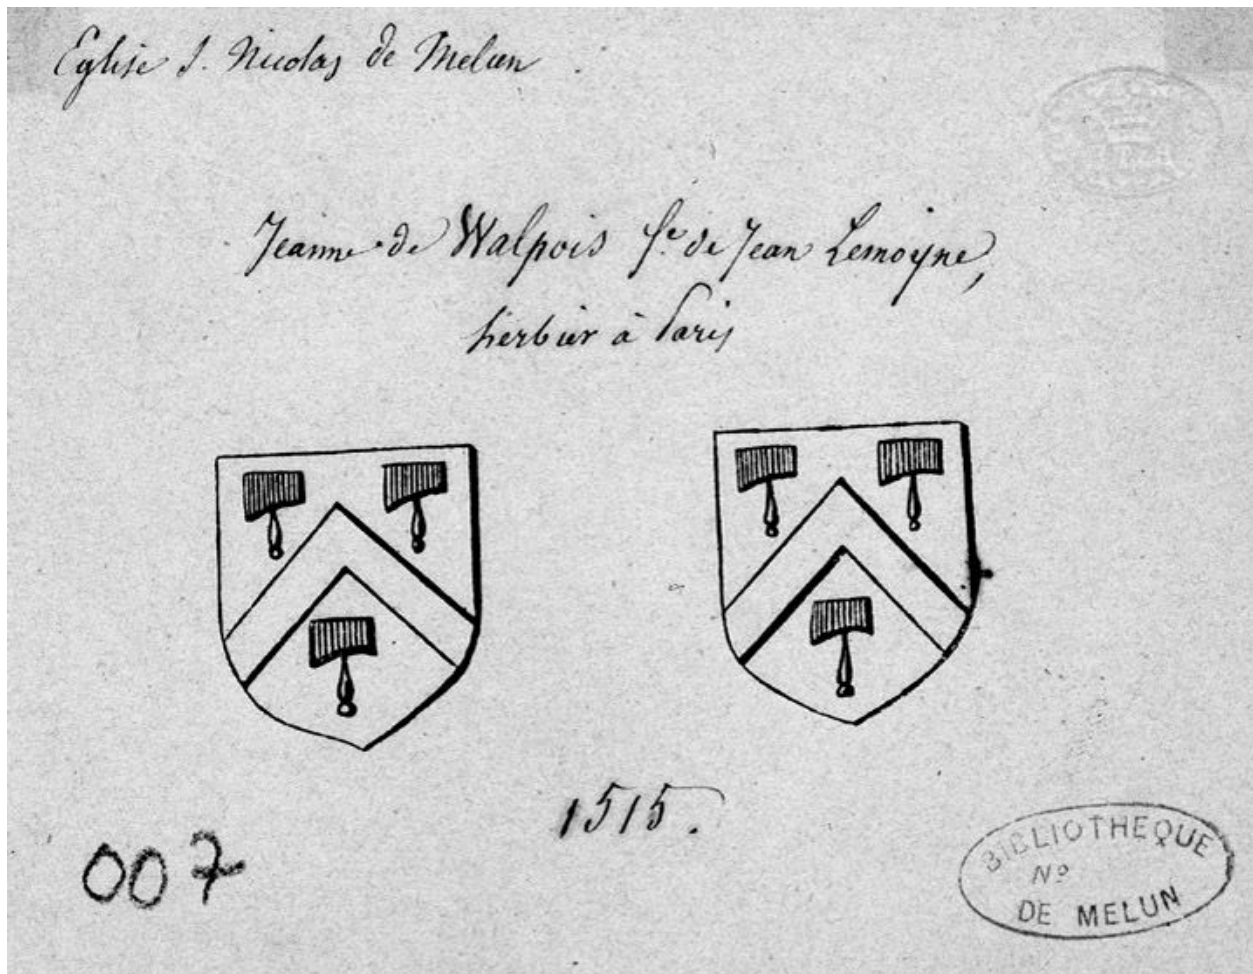 Eglise S. Nicolas de Melun
Jeanne de Walpois fe. de Jean Lemoyne,
herbier à Paris
1515.
007
BIBLIOTHEQUE
No
DE MELUN